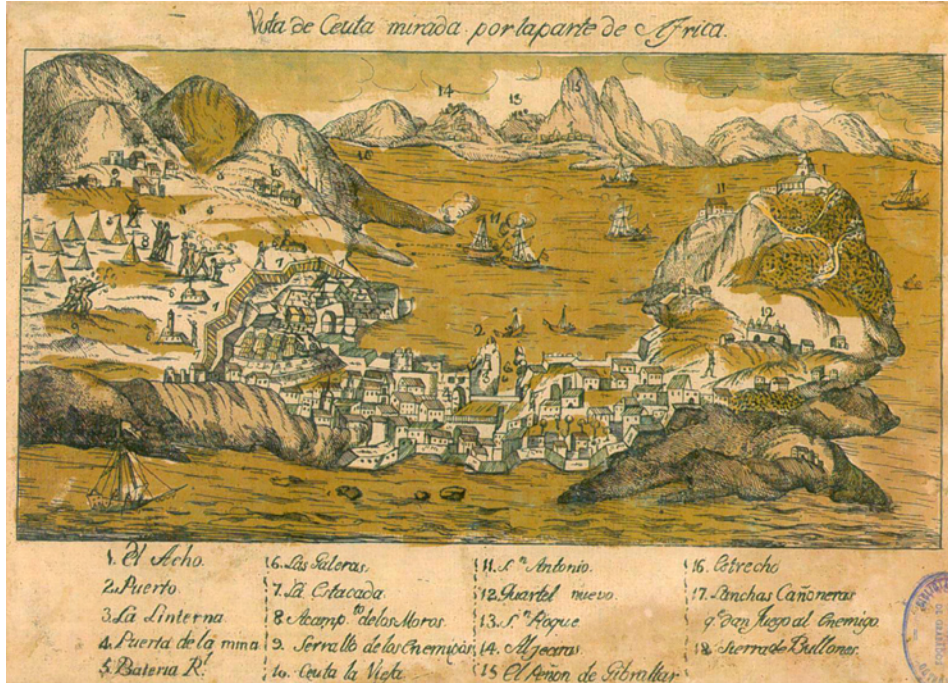 Vista de Ceuta mirada por la parte de Africa.
1. El Acho.
2. Puerto.
3. La Linterna
4. Puerta de la mina
5. Bateria Rl.
6. Las Galeras.
7. La Estacada.
8 Acamp.to de los Moros.
9. Serrallo de los Enemigos
10. Ceuta la Vieja
11. Sn Antonio.
12. Quartel nuevo.
13. Sn Roque
14. Algeciras.
15 El Peñon de Gibraltar
16. Estrecho
17. Lanchas Cañoneras
q.e dan fuego al Enemigo.
18. Sierra de Bullones.